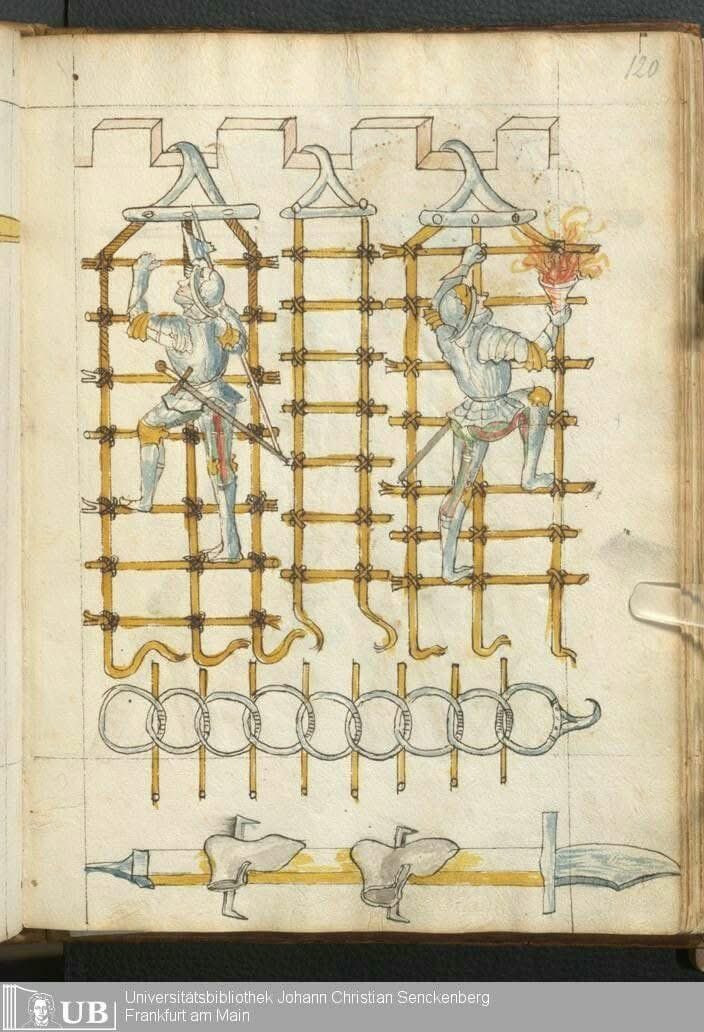 120
UB
Universitätsbibliothek Johann Christian Senckenberg
Frankfurt am Main